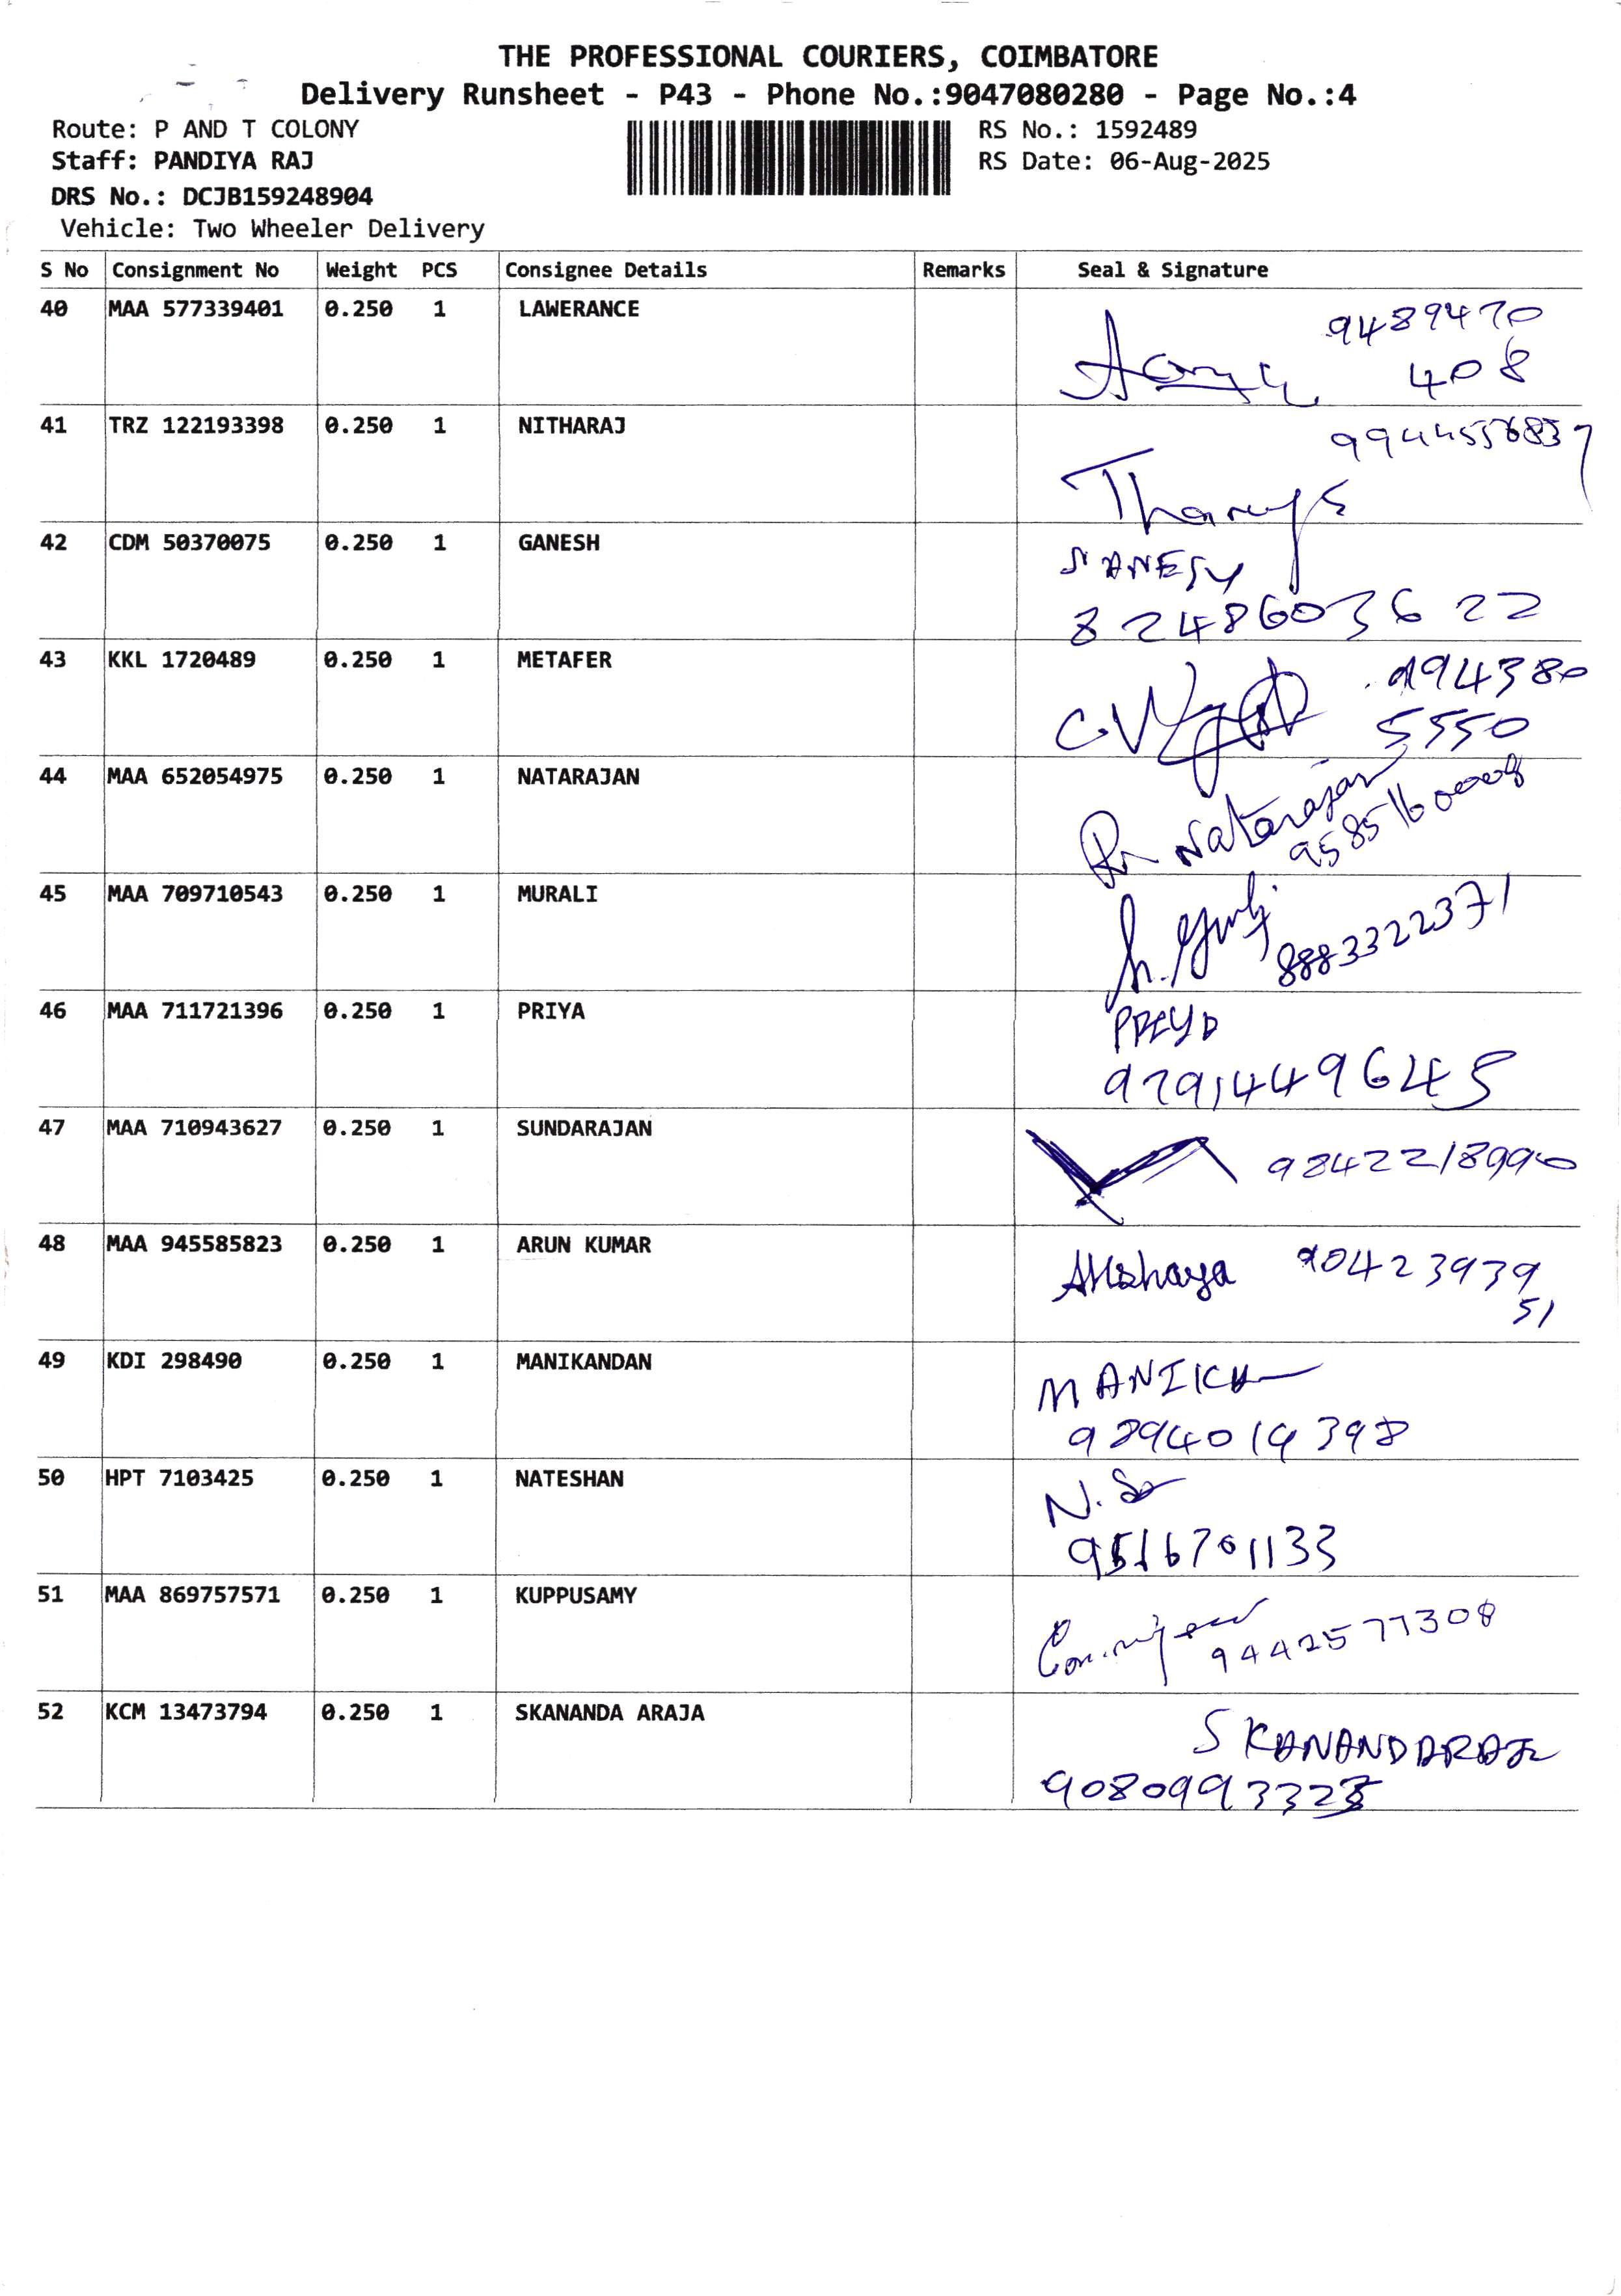 THE PROFESSIONAL COURIERS, COIMBATORE
Delivery Runsheet - P43 - Phone No.:9047080280 - Page No.:4
Route: P AND T COLONY
RS No.: 1592489
Staff: PANDIYA RAJ
RS Date: 06-Aug-2025
DRS No.: DCJB159248904
Vehicle: Two Wheeler Delivery
S No Consignment No Weight PCS Consignee Details Remarks Seal & Signature
40 MAA 577339401 0.250 1 LAWERANCE
9489470
408
41 TRZ 122193398 0.250 1 NITHARAJ
42 CDM 50370075 0.250 1 GANESH
8248603622
43 KKL 1720489 0.250 1 METAFER
994380
5550
44 MAA 652054975 0.250 1 NATARAJAN
Natarajan
45 MAA 709710543 0.250 1 MURALI
8883322371
46 MAA 711721396 0.250 1 PRIYA
9791449645
47 MAA 710943627 0.250 1 SUNDARAJAN
9842218990
48 MAA 945585823 0.250 1 ARUN KUMAR
Akshaya 90423939
51
49 KDI 298490 0.250 1 MANIKANDAN
9894019398
50 HPT 7103425 0.250 1 NATESHAN
N.
51 MAA 869757571 0.250 1 KUPPUSAMY
9442577308
52 KCM 13473794 0.250 1 SKANANDA ARAJA